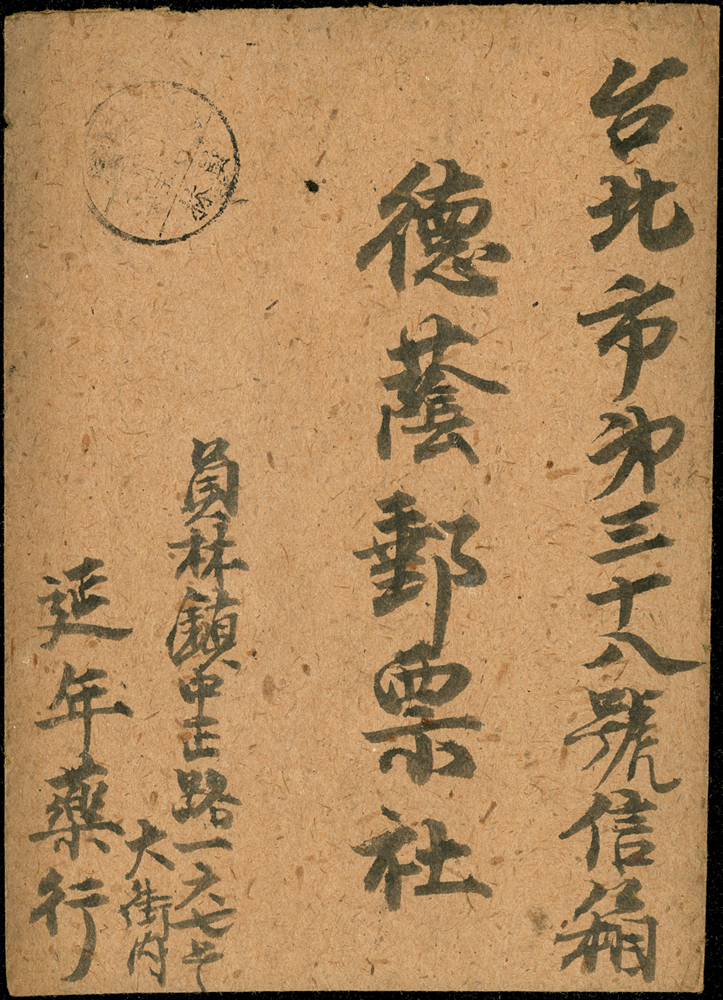 台北市第三十八號信箱
德蔭郵票社
員林鎮中正路一六七号
大街內
延年藥行